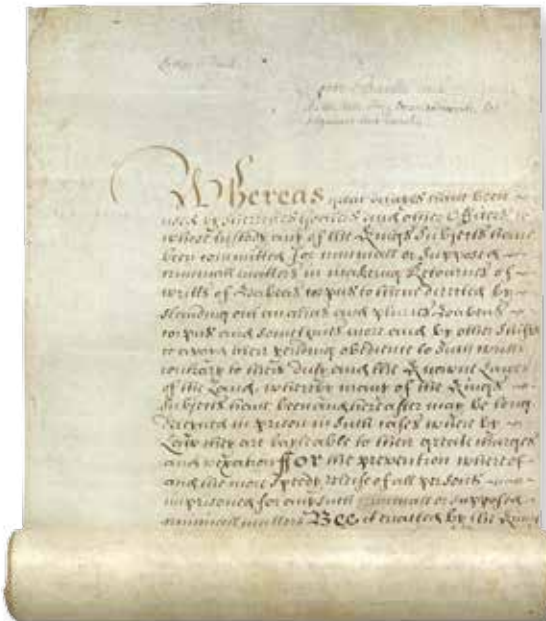 Whereas great delayes have been
used by Sherriffes Goalers and other Officers to
whose Custody any of the Kings Subjects have
been committed for criminall or supposed
criminall matters in makeing Retournes of
writts of Habeas Corpus to them directed by
standing out an alias and pluries Habeas
Corpus and sometymes more and by other shifts
to avoyd their yeilding obedience to such writts
contrary to their duty and the knowne Lawes
of the Land whereby many of the Kings
Subjects have been and hereafter may be long
detayned in prison in such cases where by
Law they are baylable to their great charges
and vexation ffor the prevention whereof
and the more speedy Releife of all persons
imprisoned for any such criminall or supposed
criminall matters Bee it enacted by the Kings